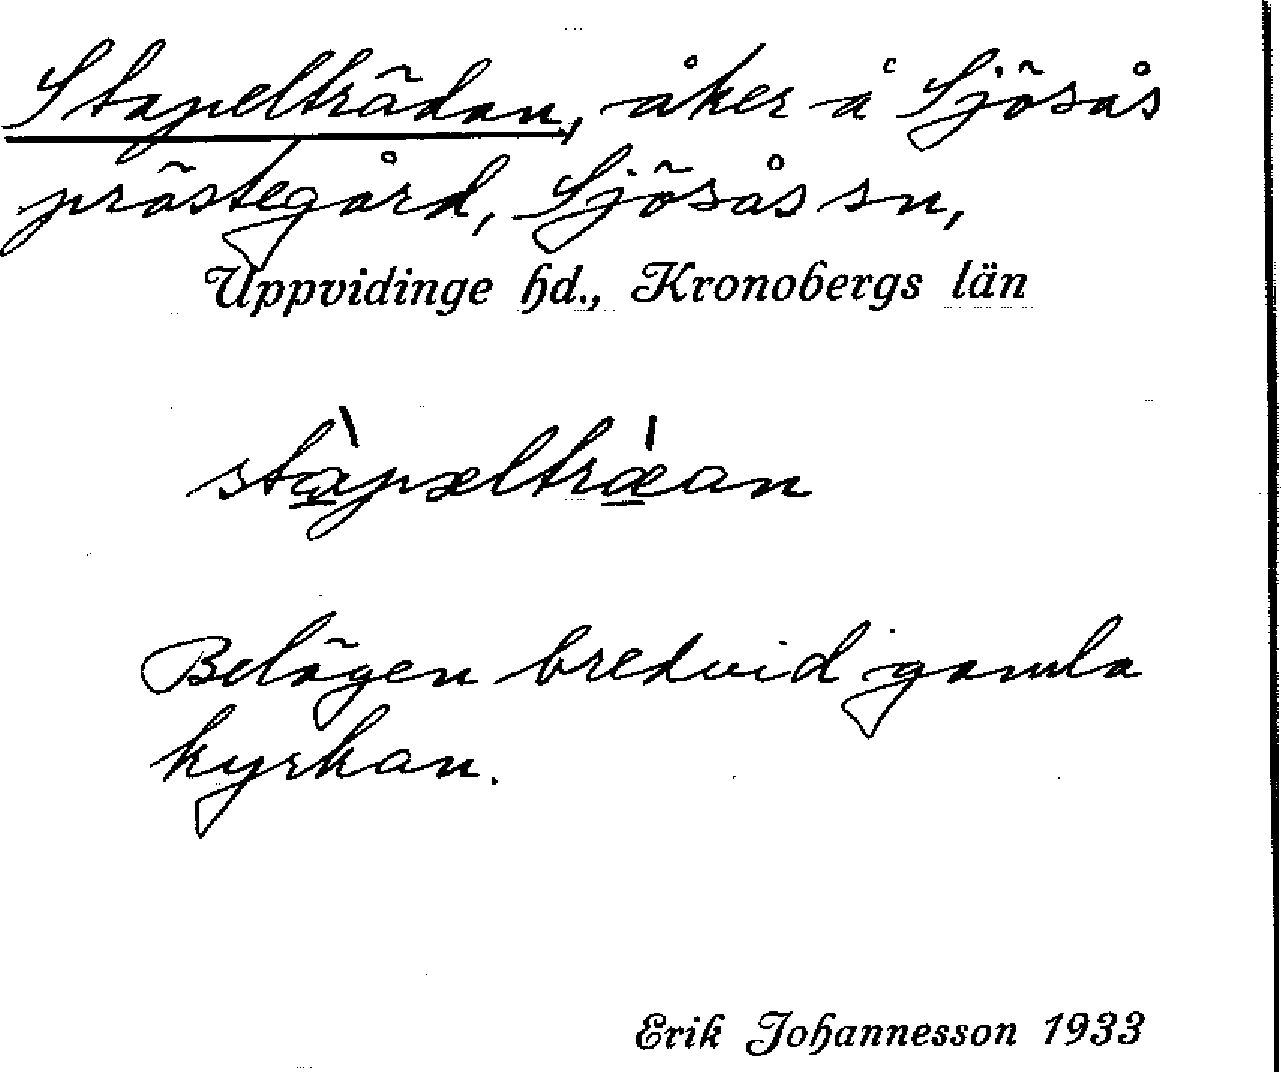 Stapelträdan, åker å Sjösås
prästegård, Sjösås sn,
Uppvidinge hd., Kronobergs län
stàpæltræ̀an
Belägen bredvid gamla
kyrkan.
Erik Johannesson 1933